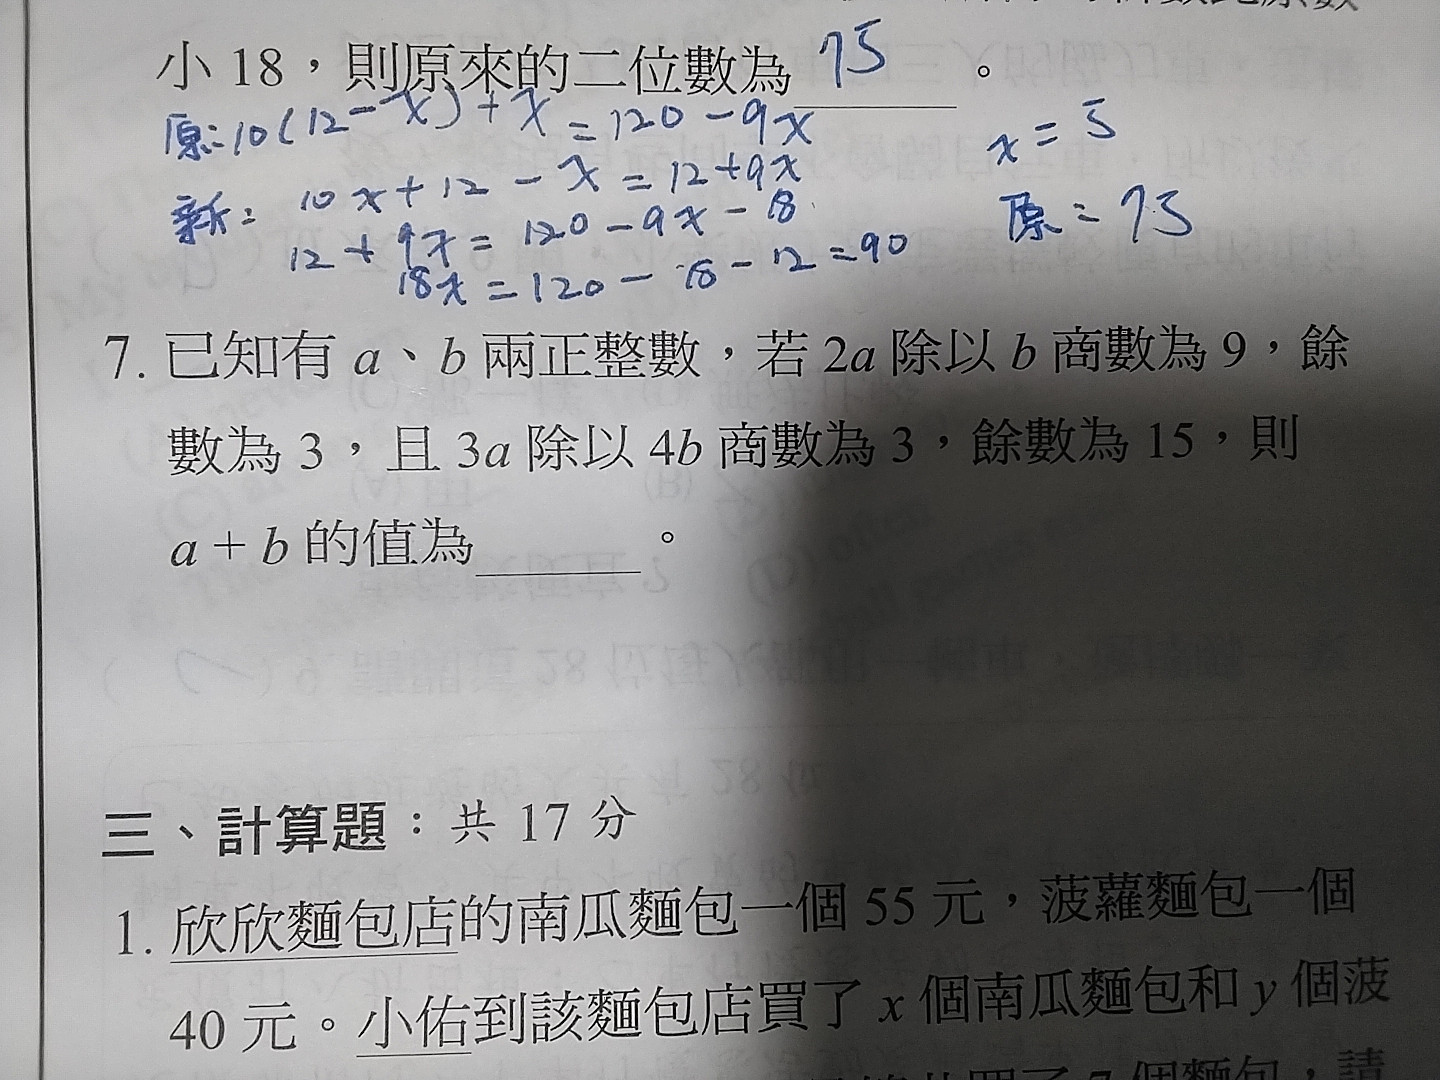 小 18，則原來的二位數為 75 。
原：10(12-x)+x =120-9x
x=5
新：10x+12-x=12+9x
原=75
12+9x=120-9x-18
18x=120-18-12=90
7. 已知有 a、b 兩正整數，若 2a 除以 b 商數為 9，餘
數為 3，且 3a 除以 4b 商數為 3，餘數為 15，則
a+b 的值為______。
三、計算題：共 17 分
1. 欣欣麵包店的南瓜麵包一個 55 元，菠蘿麵包一個
40 元。小佑到該麵包店買了 x 個南瓜麵包和 y 個菠
買了 7 個麵包，請